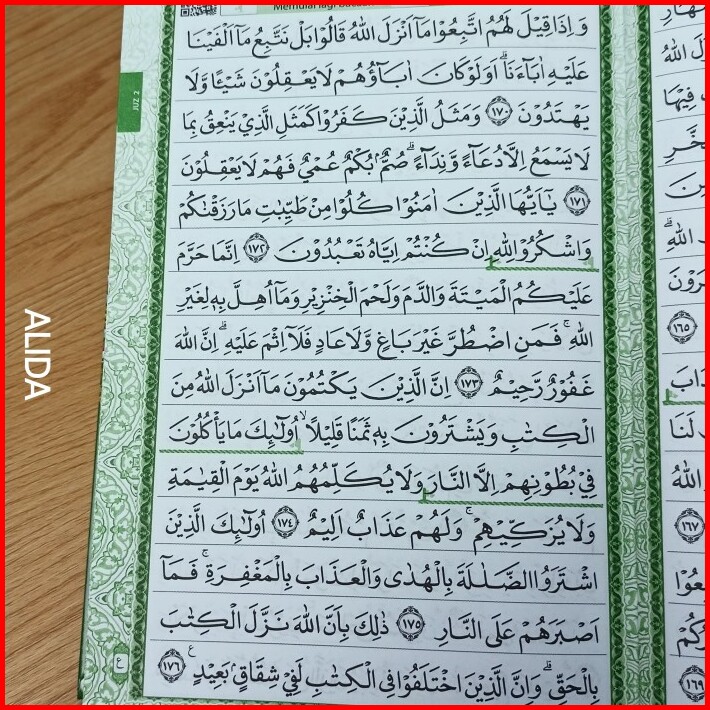 وَاِذَا قِيْلَ لَهُمُ اتَّبِعُوْا مَآ اَنْزَلَ اللّٰهُ قَالُوْا بَلْ نَتَّبِعُ مَآ اَلْفَيْنَا
عَلَيْهِ اٰبَاۤءَنَاۗ اَوَلَوْ كَانَ اٰبَاۤؤُهُمْ لَا يَعْقِلُوْنَ شَيْـًٔا وَّلَا
يَهْتَدُوْنَ ١٧٠ وَمَثَلُ الَّذِيْنَ كَفَرُوْا كَمَثَلِ الَّذِيْ يَنْعِقُ بِمَا
لَا يَسْمَعُ اِلَّا دُعَاۤءً وَّنِدَاۤءًۗ صُمٌّۢ بُكْمٌ عُمْيٌ فَهُمْ لَا يَعْقِلُوْنَ
١٧١ يٰٓاَيُّهَا الَّذِيْنَ اٰمَنُوْا كُلُوْا مِنْ طَيِّبٰتِ مَا رَزَقْنٰكُمْ
وَاشْكُرُوْا لِلّٰهِ اِنْ كُنْتُمْ اِيَّاهُ تَعْبُدُوْنَ ١٧٢ اِنَّمَا حَرَّمَ
عَلَيْكُمُ الْمَيْتَةَ وَالدَّمَ وَلَحْمَ الْخِنْزِيْرِ وَمَآ اُهِلَّ بِهٖ لِغَيْرِ
اللّٰهِۚ فَمَنِ اضْطُرَّ غَيْرَ بَاغٍ وَّلَا عَادٍ فَلَآ اِثْمَ عَلَيْهِۗ اِنَّ اللّٰهَ
غَفُوْرٌ رَّحِيْمٌ ١٧٣ اِنَّ الَّذِيْنَ يَكْتُمُوْنَ مَآ اَنْزَلَ اللّٰهُ مِنَ
الْكِتٰبِ وَيَشْتَرُوْنَ بِهٖ ثَمَنًا قَلِيْلًاۙ اُولٰۤىِٕكَ مَا يَأْكُلُوْنَ
فِيْ بُطُوْنِهِمْ اِلَّا النَّارَ وَلَا يُكَلِّمُهُمُ اللّٰهُ يَوْمَ الْقِيٰمَةِ
وَلَا يُزَكِّيْهِمْۚ وَلَهُمْ عَذَابٌ اَلِيْمٌ ١٧٤ اُولٰۤىِٕكَ الَّذِيْنَ
اشْتَرَوُا الضَّلٰلَةَ بِالْهُدٰى وَالْعَذَابَ بِالْمَغْفِرَةِۚ فَمَآ
اَصْبَرَهُمْ عَلَى النَّارِ ١٧٥ ذٰلِكَ بِاَنَّ اللّٰهَ نَزَّلَ الْكِتٰبَ
بِالْحَقِّۗ وَاِنَّ الَّذِيْنَ اخْتَلَفُوْا فِى الْكِتٰبِ لَفِيْ شِقَاقٍۢ بَعِيْدٍ ࣖ ١٧٦
JUZ 2
ع
ALIDA
١٦٥
اللّٰهُ
١٦٧
١٦٩